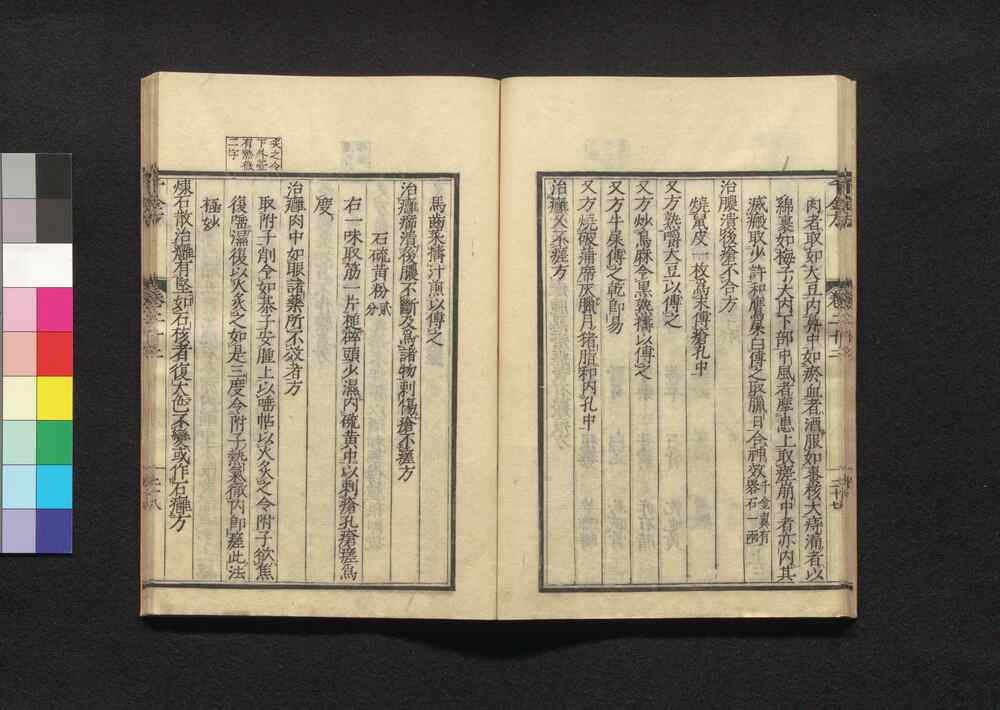 肉者取如大豆内鼻中如瘀血者酒服如棗核大痔瘻者以
綿裹如梅子大内下部中風者摩患上取瘥崩中者亦内其
滅瘢取少許和鷹屎白傅之取臘日合神效千金翼有
礜石一兩
治膿潰後瘡不合方
燒鼠皮一枚爲末傅瘡孔中
又方熟嚼大豆以傅之
又方炒烏麻令黑熟擣以傅之
又方牛屎傅之乾即易
又方燒破蒲席灰臘月猪脂和内孔中
治癰久不瘥方
馬齒菜擣汁煎以傅之
治癰癤潰後膿不斷及爲諸物刺傷瘡不瘥方
石硫黄粉貳分
右一味取筯一片槌碎頭少濕内硫黄中以刺瘡孔瘡瘥爲
度
治癰肉中如眼諸藥所不效者方
取附子削令如棊子安腫上以唾帖以火炙之令附子欲焦
復唾濕復以火炙之如是三度令附子熱氣徹内即瘥此法
極妙
煉石散治癰有堅如石核者復大色不變或作石癰方
炙之令
下外臺
有熱徹
二字
千金方
卷二十二
二十七
二十八